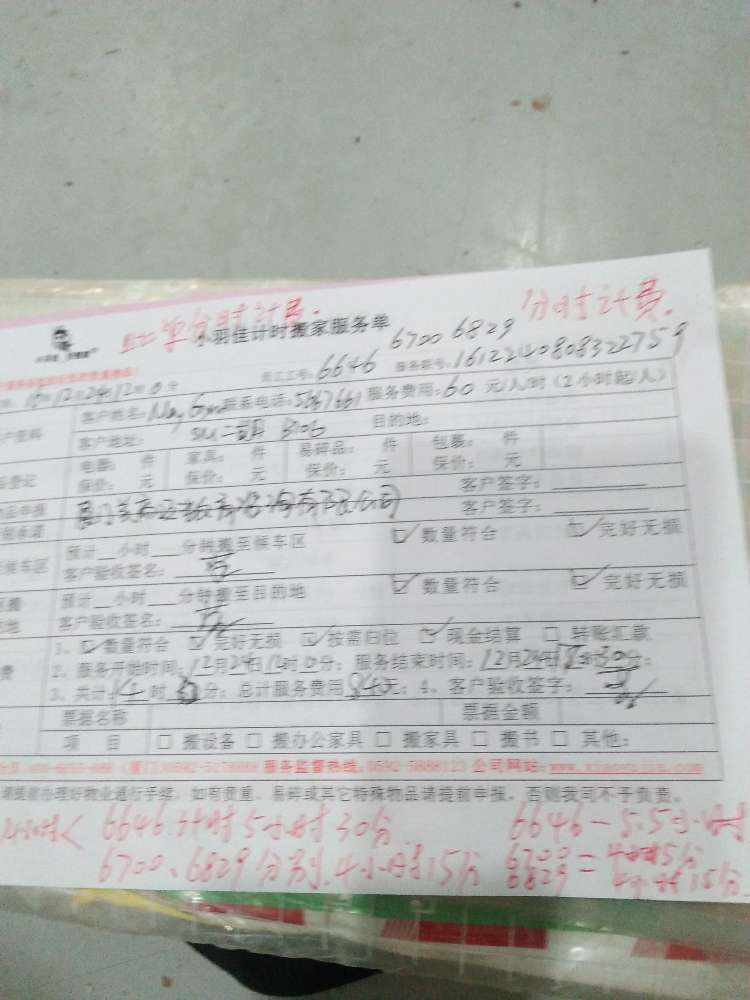 此单分时计费.
分时计费.
小羽佳计时搬家服务单
员工工号: 6646 6700 6829 服务账号: 1612240808322759
12月24日12时0分
客户姓名: 联系电话: 服务费用: 60 元/人/时 (2小时起/人)
客户地址: SM二期 目的地:
电器: 件 家具: 件 易碎品: 件 包裹: 件
保价: 元 保价: 元 保价: 元 保价: 元
客户签字:
客户签字:
预计 小时 分钟搬至候车区 数量符合 完好无损
客户验收签名:
预计 小时 分钟搬至目的地 数量符合 完好无损
客户验收签名:
1、 数量符合 完好无损 按需归位 现金结算 转账汇款
2、服务开始时间: 12月24日12时0分; 服务结束时间: 12月24日 30分;
3、共计: 时 分; 总计服务费用 840元; 4、客户验收签字:
票据名称 票据金额
项 目 搬设备 搬办公家具 搬家具 搬书 其他:
服务监督热线: 0592-5888123 公司网站: www.xiaoyujia.com
请提前办理好物业通行手续, 如有贵重、易碎或其它特殊物品请提前申报, 否则我司不予负责。
6646.计时5小时30分. 6646-5.5小时
6700、6829分别.4小时15分 6700 6829 = 4小时15分
4小时15分.